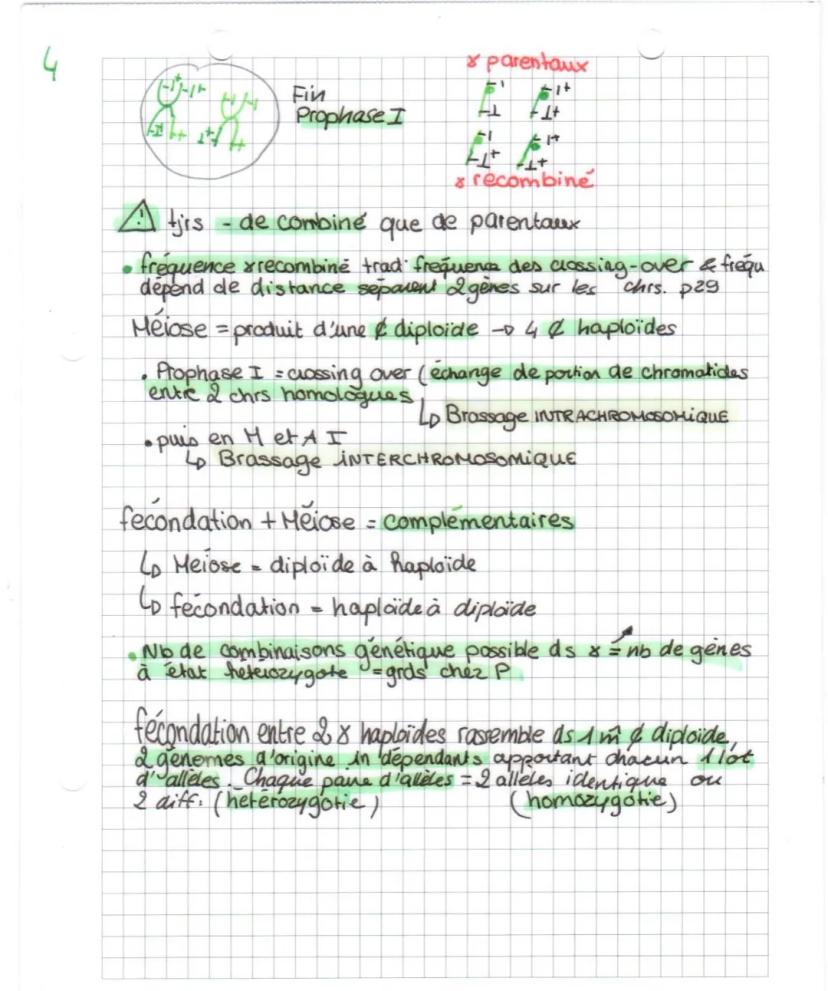 4
Fin
Prophase I
ɣ parentaux
ɣ recombiné
⚠ tjrs - de combiné que de parentaux
• fréquence ɣ recombiné trad. fréquence des crossing-over & fréqu
dépend de distance séparent 2 gènes sur les chrs. p29
Méiose = produit d'une ¢ diploïde → 4 ¢ haploïdes
• Prophase I = crossing over (échange de portion de chromatides
entre 2 chrs homologues
↳ Brassage INTRACHROMOSOMIQUE
• puis en M et A I
↳ Brassage INTERCHROMOSOMIQUE
fécondation + Méiose = complémentaires
↳ Meïose = diploïde à haploïde
↳ fécondation = haploïde à diploïde
• Nb de combinaisons génétique possible ds ɣ = nb de gènes
à état hétérozygote = grds chez P
fécondation entre 2 ɣ haploïdes rassemble ds 1 m̂ ¢ diploïde,
2 génomes d'origine indépendants apportant chacun 1 lot
d'allèles. Chaque paire d'allèles = 2 allèles identique ou
2 diff. (hétérozygotie) (homozygotie)